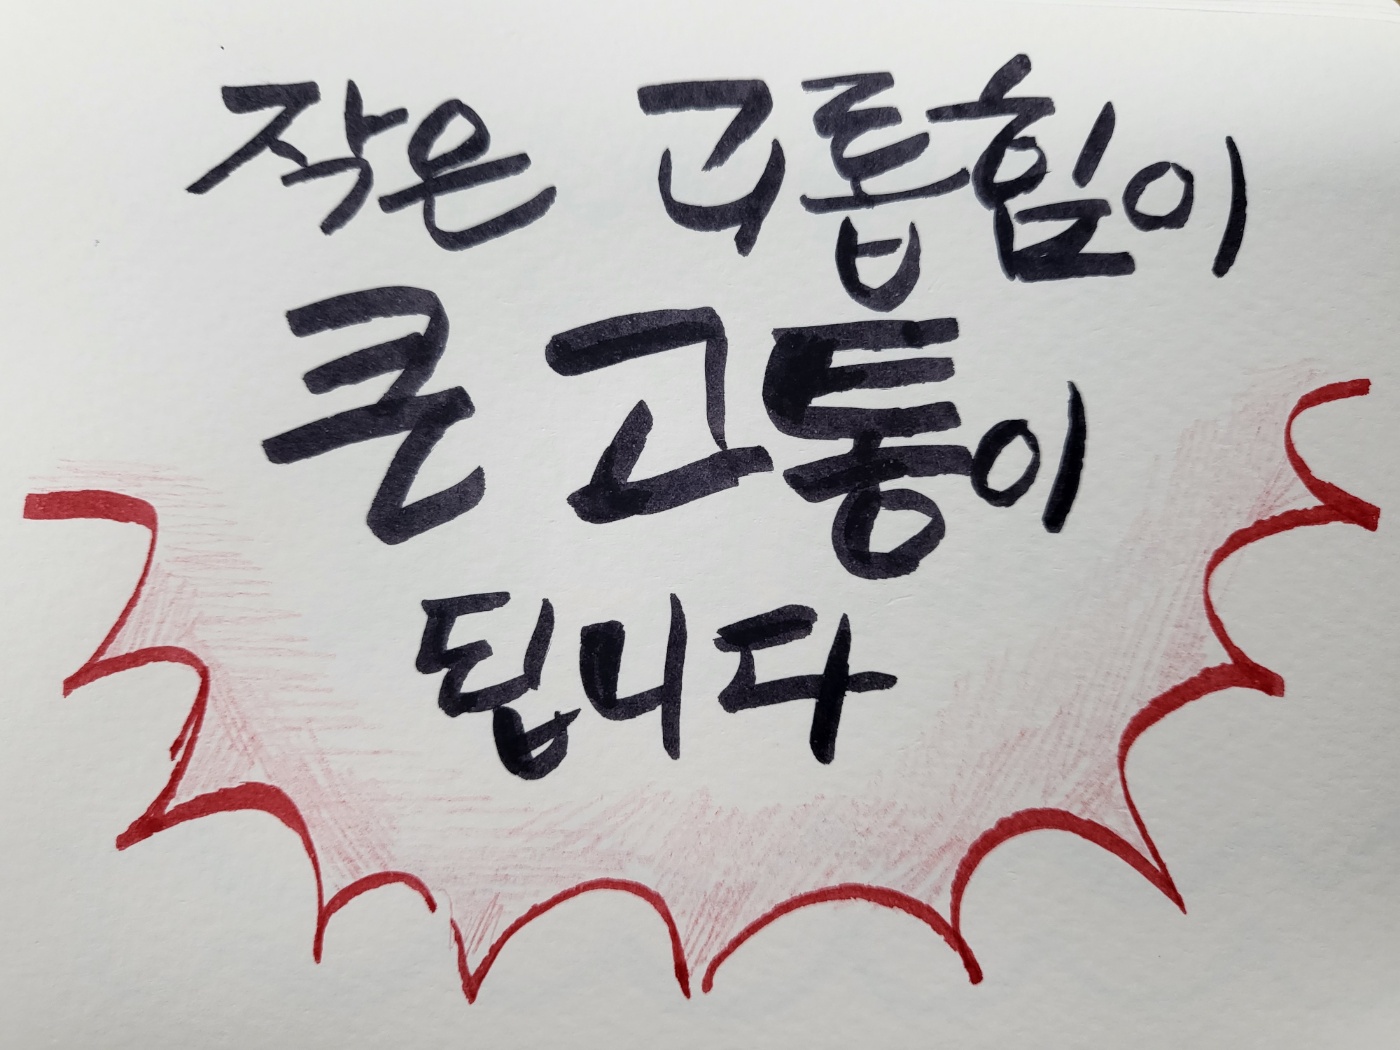 작은 괴롭힘이
큰 고통이
됩니다